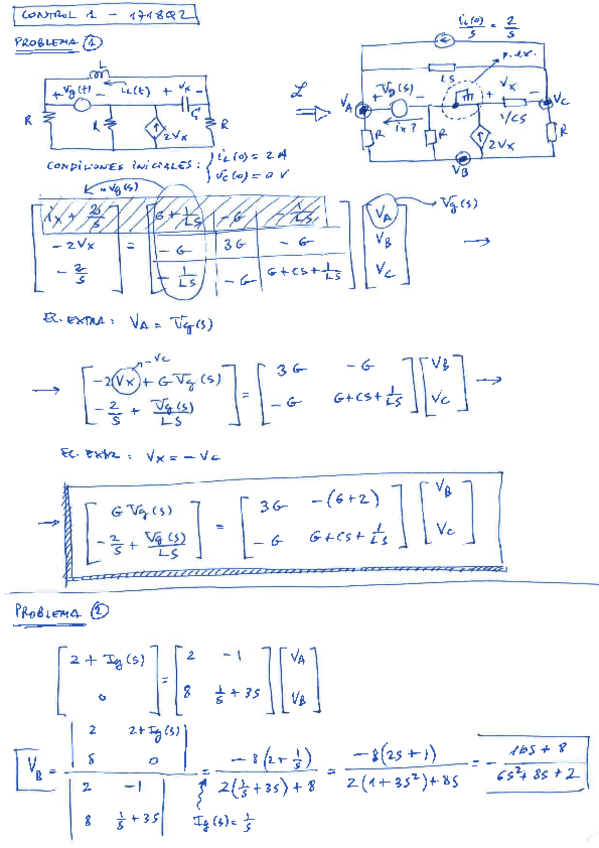 CONTROL 1 - 1718Q2
PROBLEMA 1
L
+ Vg(t) - iL(t) + Vx -
R R R C
2Vx
CONDICIONES INICIALES: { iL(0) = 2 A
Vc(0) = 0 V
L
⟹
iL(0)/S = 2/S
LS
P. ex.
VA + Vg(s) - + Vx - VC
ix? 1/CS
R R 2Vx R
VB
= Vg(s)
[ ix + 2/S ; -2Vx ; -2/S ] = [ G + 1/LS -G -1/LS ; -G 3G -G ; -1/LS -G G+CS+1/LS ] [ VA ; VB ; VC ] →
Vg(s)
EC. EXTRA: VA = Vg(s)
-Vc
→ [ -2Vx + G Vg(s) ; -2/S + Vg(s)/LS ] = [ 3G -G ; -G G+CS+1/LS ] [ VB ; VC ] →
EC. EXTR: Vx = -Vc
→ [ G Vg(s) ; -2/S + Vg(s)/LS ] = [ 3G -(G+2) ; -G G+CS+1/LS ] [ VB ; VC ]
PROBLEMA 2
[ 2 + Ig(s) ; 0 ] = [ 2 -1 ; 8 1/S + 3S ] [ VA ; VB ]
VB = | 2 2+Ig(s) ; 8 0 | / | 2 -1 ; 8 1/S + 3S | = -8(2+1/S) / 2(1/S+3S)+8 = -8(2S+1) / 2(1+3S²)+8S = - 16S+8 / 6S²+8S+2
Ig(s) = 1/S